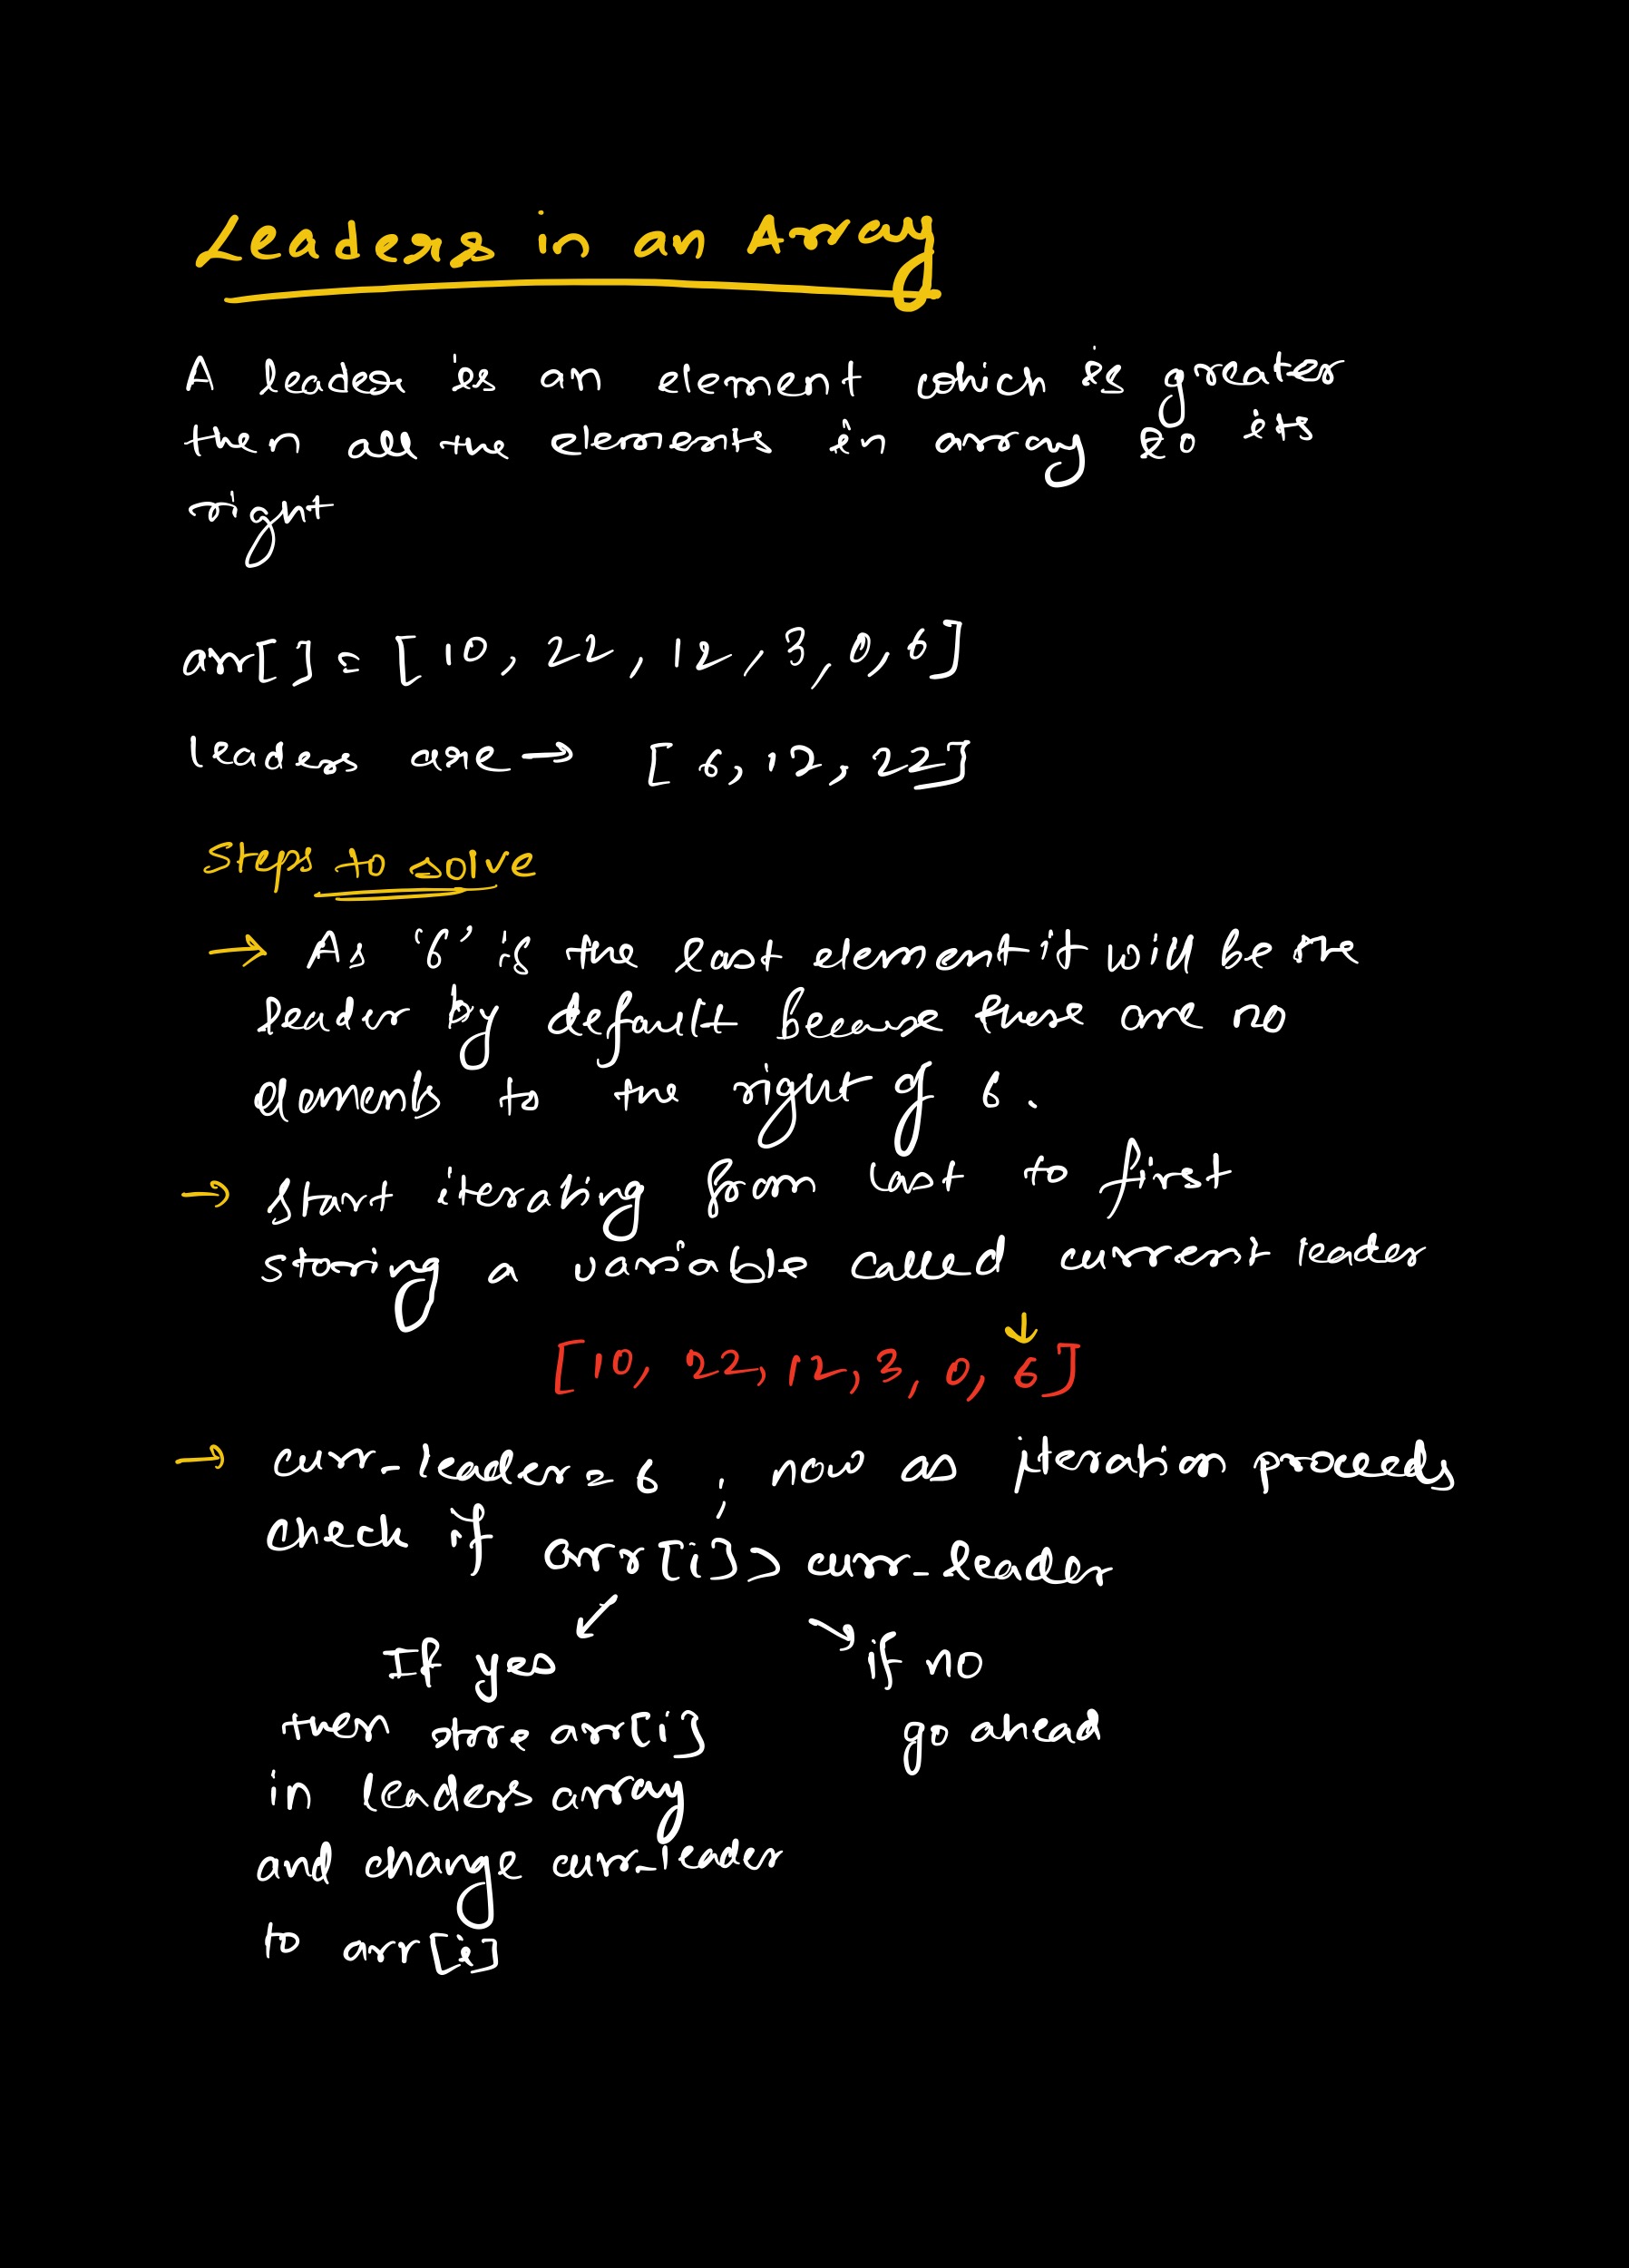 Leaders in an Array
A leader is an element which is greater
then all the elements in array to its
right
arr[] = [10, 22, 12, 3, 0, 6]
leaders are → [6, 12, 22]
Steps to solve
→ As '6' is the last element it will be the
leader by default because there are no
elements to the right of 6.
→ start iterating from last to first
storing a variable called current leader
↓
[10, 22, 12, 3, 0, 6]
→ curr-leader = 6 ; now as iteration proceeds
check if arr[i] > curr-leader
↙ ↘
If yes if no
then store arr[i] go ahead
in leaders array
and change curr-leader
to arr[i]